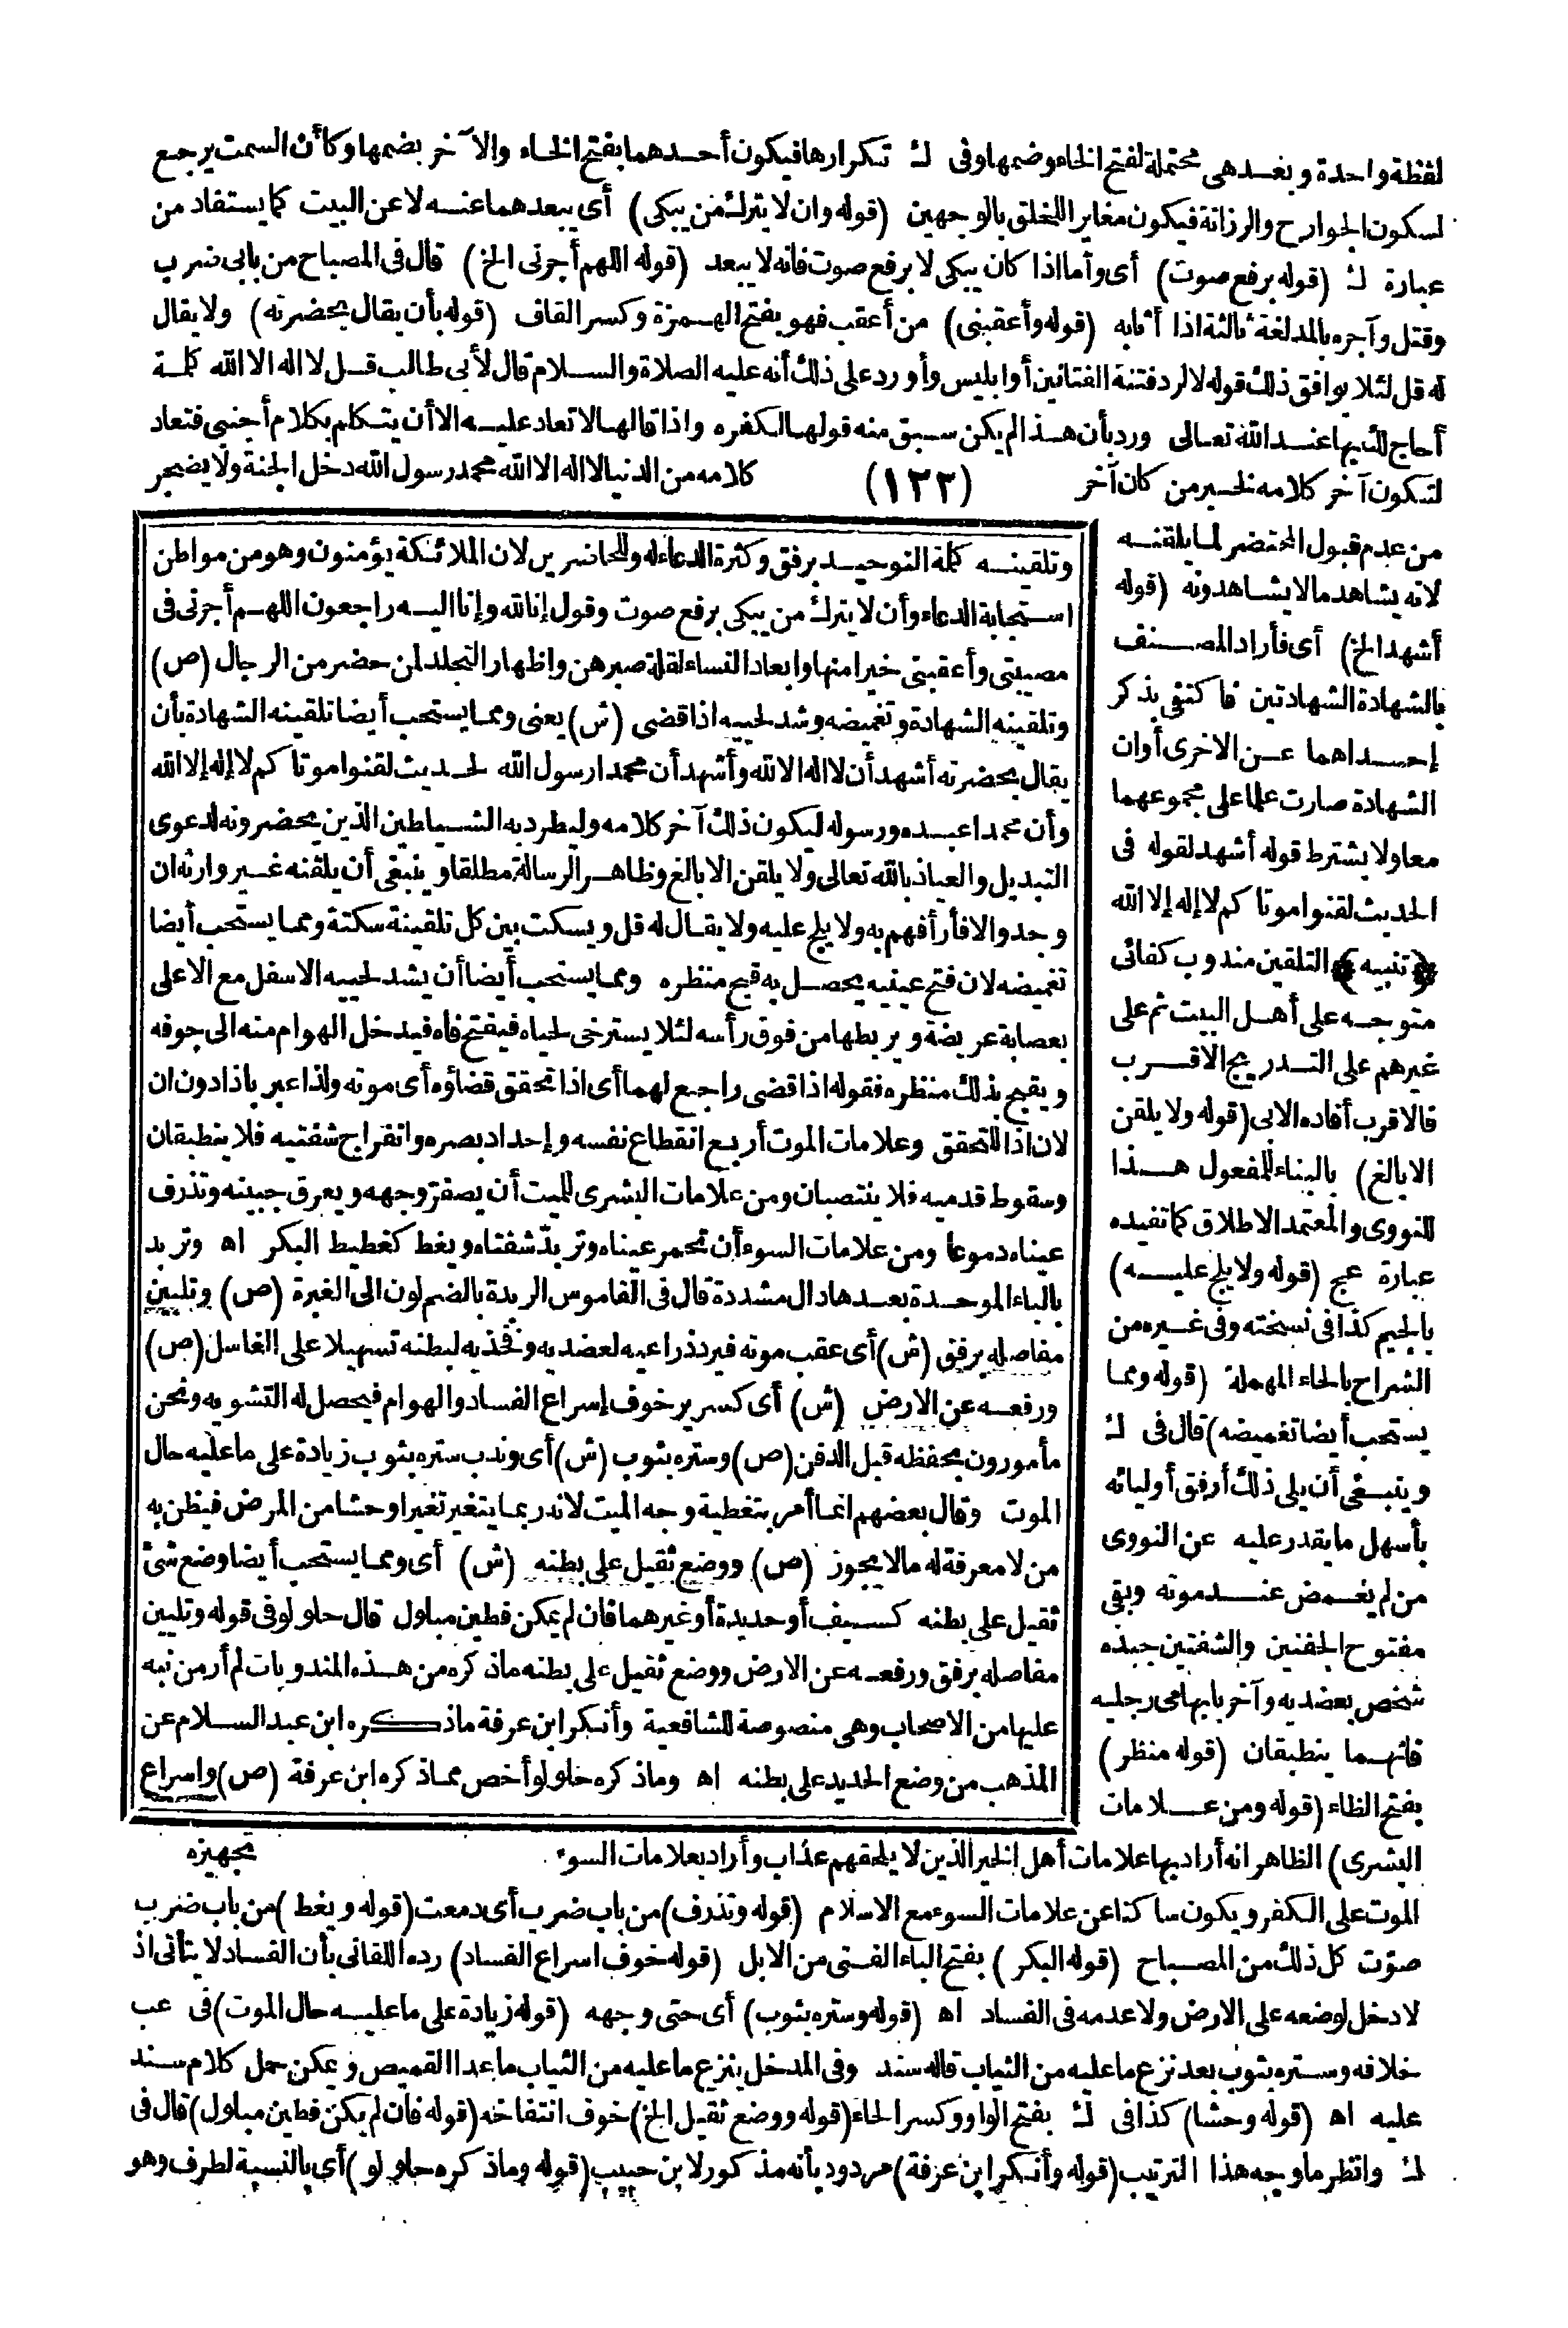 لفظة واحدة و بعد هى محتملة لفتح الخاء وضمها وفى ك تكرارها فيكون أحدهما بفتح الخاء والآخر بضمها وكأن السمت يرجع
لسكون الجوارح والرزانة فيكون مغايرا للخلق بالوجهين (قوله وان لا يترك من يبكى) أى يبعدهما عنه لا عن البيت كما يستفاد من
عبارة ك (قوله برفع صوت) أى وأما اذا كان يبكى لا برفع صوت فانه لا يبعد (قوله اللهم أجرنى الخ) قال فى المصباح من بابى ضرب
وقتل وآجره بالمد لغة ثالثة اذا أثابه (قوله وأعقبنى) من أعقب فهو بفتح الهمزة وكسر القاف (قوله بأن يقال بحضرته) ولا يقال
له قل لئلا يوافق ذلك قوله لا لرد فتنة الفتانين أو ابليس وأورد على ذلك أنه عليه الصلاة والسلام قال لأبى طالب قل لا اله الا الله كلمة
أحاج لك بها عند الله تعالى ورد بأن هذا لم يكن سبق منه قولها لكفره واذا قالها لا تعاد عليه الا أن يتكلم بكلام أجنبى فتعاد
لتكون آخر كلامه لخبر من كان آخر (١٢٢) كلامه من الدنيا لا اله الا الله محمد رسول الله دخل الجنة ولا يضجر
من عدم قبول المحتضر لما يلقنه
لانه يشاهد ما لا يشاهدونه (قوله
أشهد الخ) أى فأراد المصنف
بالشهادة الشهادتين فاكتفى بذكر
إحداهما عن الاخرى أو ان
الشهادة صارت علما على مجموعهما
معا ولا يشترط قوله أشهد لقوله فى
الحديث لقنوا موتاكم لا إله إلا الله
﴿تنبيه﴾ التلقين مندوب كفائى
متوجه على أهل البيت ثم على
غيرهم على التدريج الاقرب
فالاقرب أفاده الابى (قوله ولا يلقن
الا بالغ) بالبناء للمفعول هذا
للنووى والمعتمد الاطلاق كما تفيده
عبارة عج (قوله ولا يلج عليه)
بالجيم كذا فى نسخته وفى غيره من
الشراح بالحاء المهملة (قوله ومما
يستحب أيضا تغميضه) قال فى ك
وينبغى أن يلى ذلك أرفق أوليائه
بأسهل ما يقدر عليه عن النووى
من لم يغمض عند موته وبقى
مفتوح الجفنين والشفتين جبذه
شخص بعضديه وآخر بابهامى رجليه
فانهما ينطبقان (قوله منظر)
بفتح الظاء (قوله ومن علامات
وتلقينه كلمة التوحيد برفق وكثرة الدعاء له وللحاضرين لان الملائكة يؤمنون وهو من مواطن
استجابة الدعاء وأن لا يترك من يبكى برفع صوت وقول إنا لله وإنا اليه راجعون اللهم أجرنى فى
مصيبتى وأعقبنى خيرا منها وابعاد النساء لقلة صبرهن واظهار التجلد لمن حضر من الرجال (ص)
وتلقينه الشهادة وتغميضه وشد لحييه اذا قضى (ش) يعنى ومما يستحب أيضا تلقينه الشهادة بأن
يقال بحضرته أشهد أن لا اله الا الله وأشهد أن محمدا رسول الله لحديث لقنوا موتاكم لا إله إلا الله
وأن محمدا عبده ورسوله ليكون ذلك آخر كلامه وليطرد به الشياطين الذين يحضرونه لدعوى
التبديل والعياذ بالله تعالى ولا يلقن الا بالغ وظاهر الرسالة مطلقا وينبغى أن يلقنه غير وارثه ان
وجد والا فأرأفهم به ولا يلج عليه ولا يقال له قل ويسكت بين كل تلقينة سكتة ومما يستحب أيضا
تغميضه لان فتح عينيه يحصل به قبح منظره ومما يستحب أيضا أن يشد لحييه الاسفل مع الاعلى
بعصابة عريضة ويربطها من فوق رأسه لئلا يسترخى لحياه فيفتح فاه فيدخل الهوام منه الى جوفه
ويقبح بذلك منظره فقوله اذا قضى راجع لهما أى اذا تحقق قضاؤه أى موته ولذا عبر باذا دون ان
لان اذا للتحقق وعلامات الموت أربع انقطاع نفسه وإحداد بصره وانفراج شفتيه فلا ينطبقان
وسقوط قدميه فلا ينتصبان ومن علامات البشرى للميت أن يصفرّ وجهه ويعرق جبينه وتذرف
عيناه دموعا ومن علامات السوء أن تحمر عيناه وتربدّ شفتاه ويغط كغطيط البكر اه وتربد
بالباء الموحدة بعدها دال مشددة قال فى القاموس الربدة بالضم لون الى الغبرة (ص) وتليين
مفاصله برفق (ش) أى عقب موته فيرد ذراعيه لعضديه وفخذيه لبطنه تسهيلا على الغاسل (ص)
ورفعه عن الارض (ش) أى كسرير خوف إسراع الفساد والهوام فيحصل له التشويه ونحن
مأمورون بحفظه قبل الدفن (ص) وستره بثوب (ش) أى وندب ستره بثوب زيادة على ما عليه حال
الموت وقال بعضهم انما أمر بتغطية وجه الميت لانه ربما يتغير تغيرا وحشا من المرض فيظن به
من لا معرفة له ما لا يجوز (ص) ووضع ثقيل على بطنه (ش) أى ومما يستحب أيضا وضع شئ
ثقيل على بطنه كسيف أو حديدة أو غيرهما فان لم يمكن فطين مبلول قال حلولو فى قوله وتليين
مفاصله برفق ورفعه عن الارض ووضع ثقيل على بطنه ما ذكره من هذه المندوبات لم أر من نبه
عليها من الاصحاب وهى منصوصة للشافعية وأنكر ابن عرفة ما ذكره ابن عبد السلام عن
المذهب من وضع الحديد على بطنه اه وما ذكره حلولو أخص مما ذكره ابن عرفة (ص) واسراع
تجهيزه
البشرى) الظاهر انه أراد بها علامات أهل الخير الذين لا يلحقهم عذاب وأراد بعلامات السوء
الموت على الكفر ويكون ساكتا عن علامات السوء مع الاسلام (قوله وتذرف) من باب ضرب أى دمعت (قوله ويغط) من باب ضرب
صوّت كل ذلك من المصباح (قوله البكر) بفتح الباء الفتى من الابل (قوله خوف اسراع الفساد) رده اللقانى بأن الفساد لا يتأتى اذ
لا دخل لوضعه على الارض ولا عدمه فى الفساد اه (قوله وستره بثوب) أى حتى وجهه (قوله زيادة على ما عليه حال الموت) فى عب
خلافه وستره بثوب بعد نزع ما عليه من الثياب قاله سند وفى المدخل ينزع ما عليه من الثياب ما عدا القميص ويمكن حمل كلام سند
عليه اه (قوله وحشا) كذا فى ك بفتح الواو وكسر الحاء (قوله ووضع ثقيل الخ) خوف انتفاخه (قوله فان لم يكن فطين مبلول) قال فى
ك وانظر ما وجه هذا الترتيب (قوله وأنكر ابن عرفة) مردود بأنه مذكور لابن حبيب (قوله وما ذكره حلولو) أى بالنسبة لطرف وهو